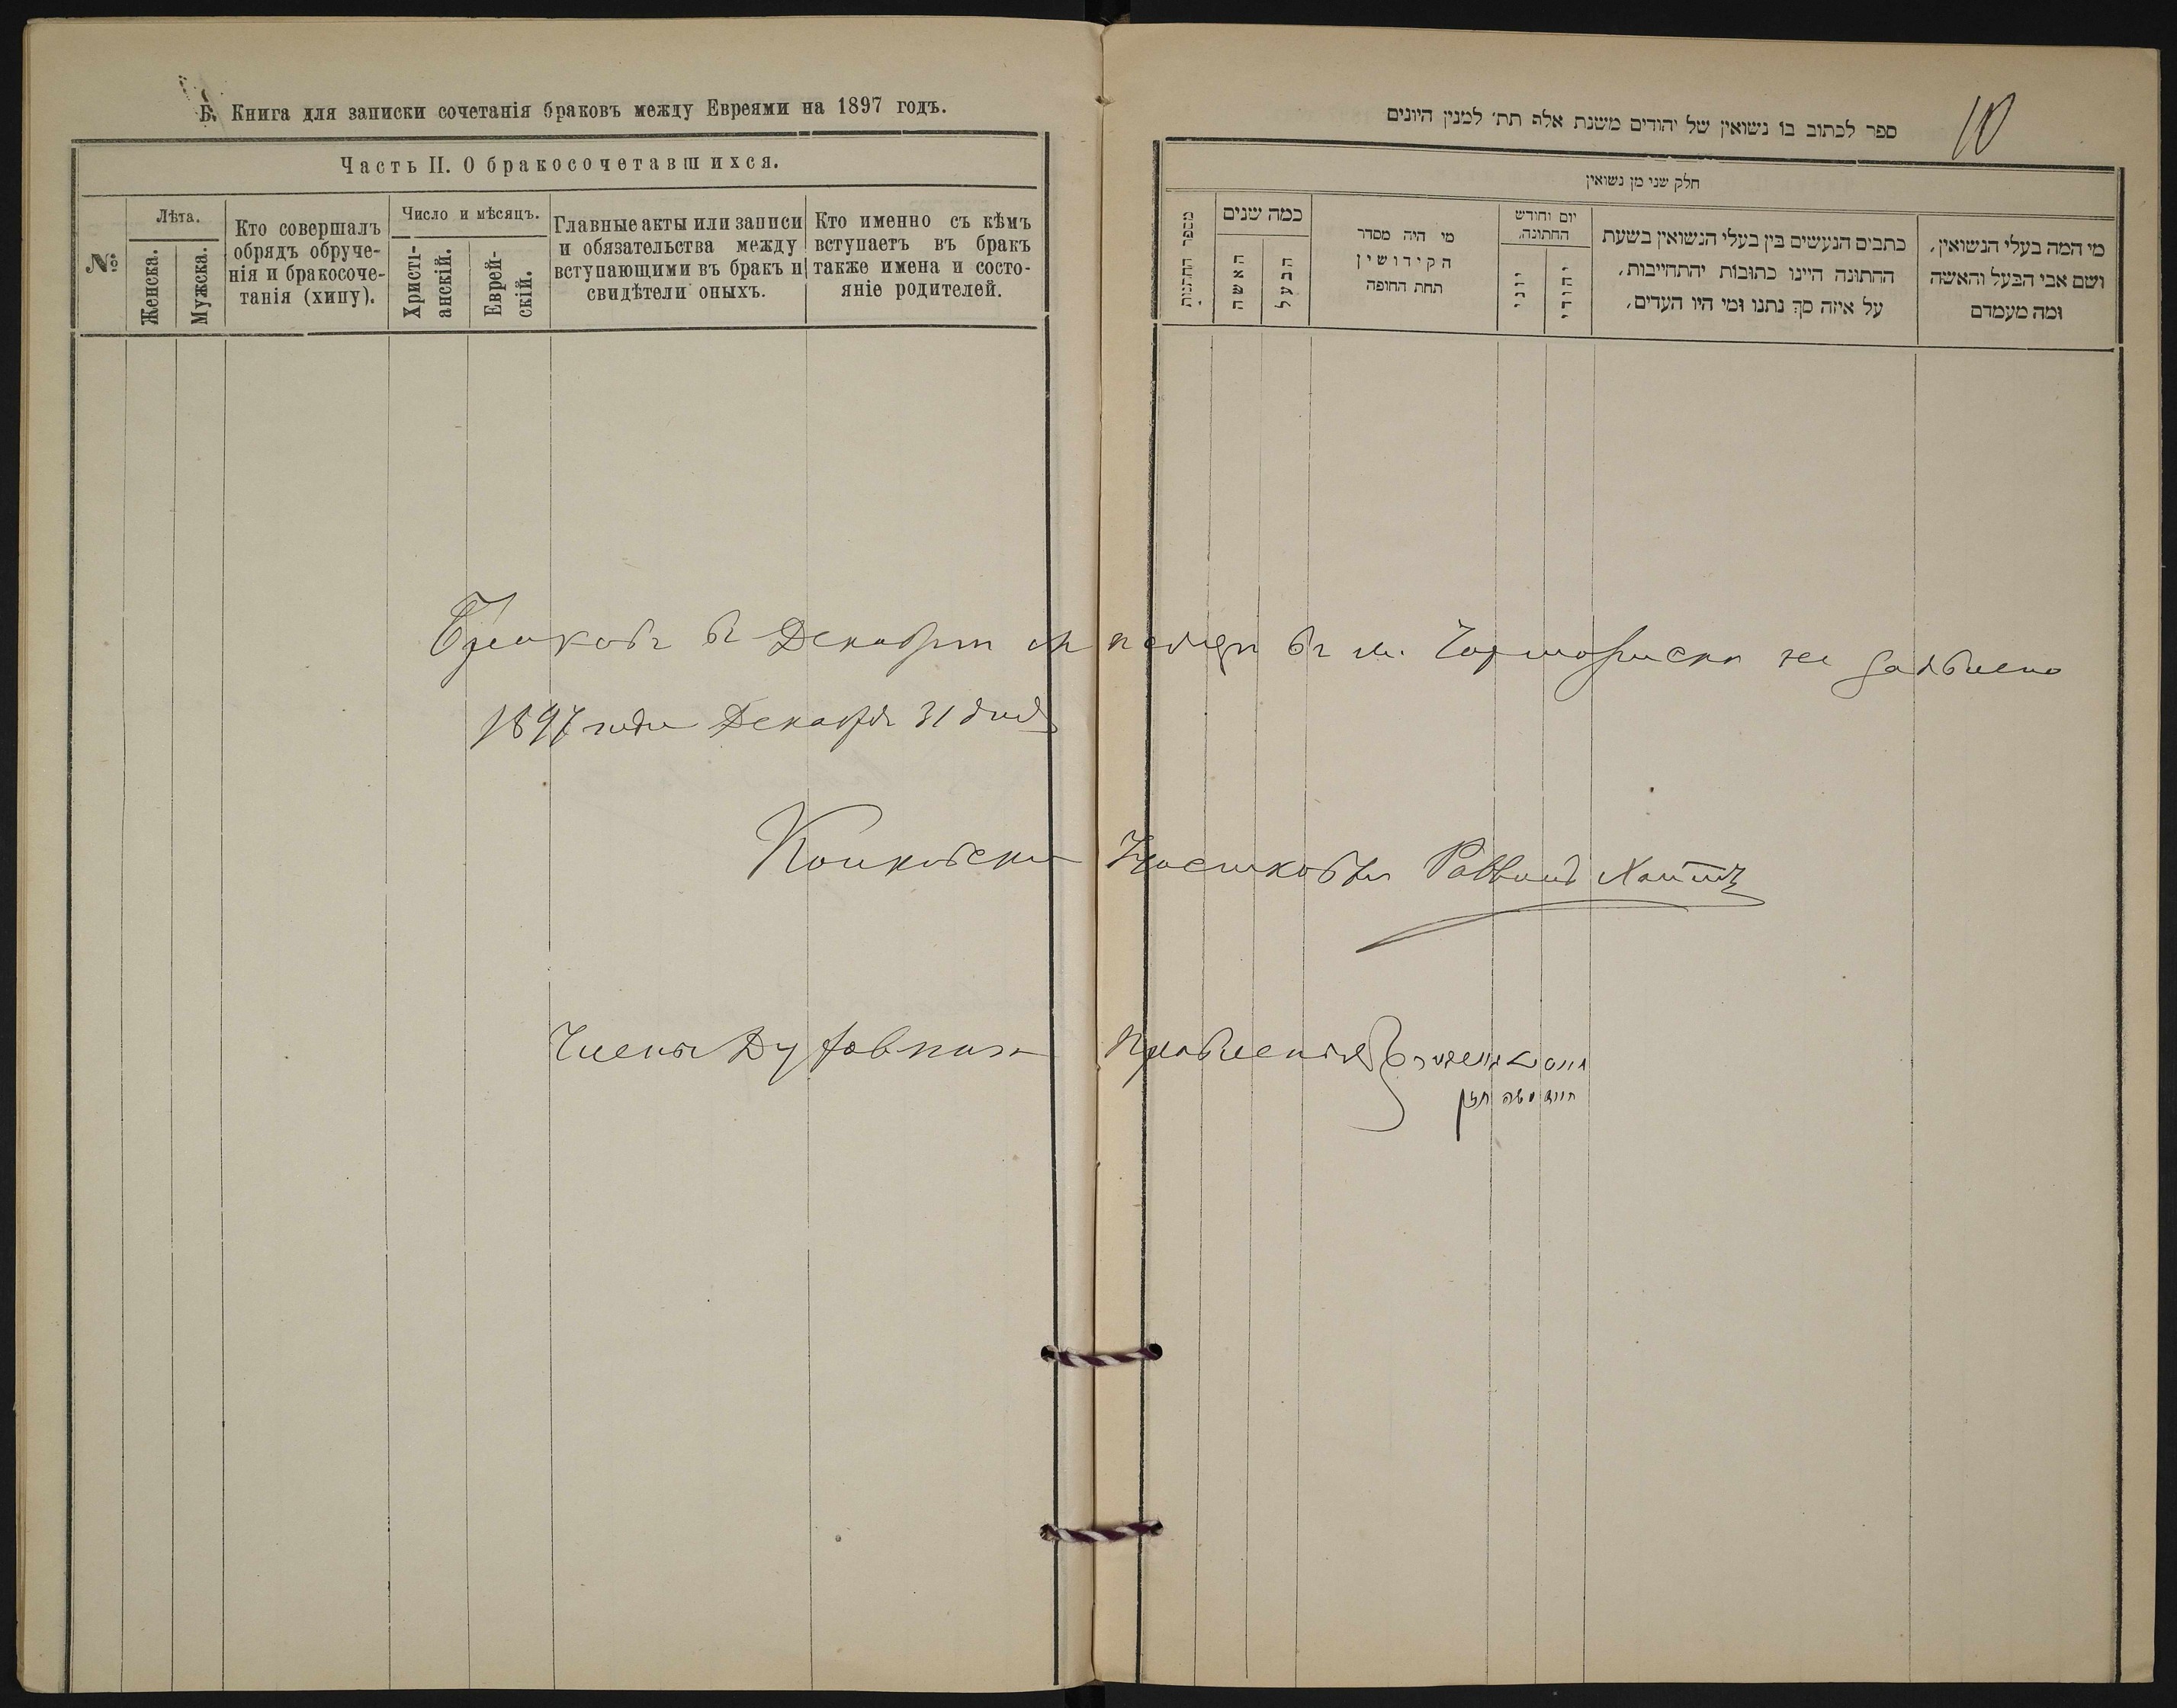 Б. Книга для записки сочетанія браковъ между Евреями на 1897 годъ.
Часть II. О бракосочетавшихся.
№
Лѣта.
Женска.
Мужска.
Кто совершалъ
обрядъ обруче-
нія и бракосоче-
танія (хипу).
Число и мѣсяцъ.
Христі-
анскій.
Еврей-
скій.
Главные акты или записи
и обязательства между
вступающими въ бракъ и
свидѣтели оныхъ.
Кто именно съ кѣмъ
вступаетъ въ бракъ
также имена и состо-
яніе родителей.
10
ספר לכתוב בו נשואין של יהודים משנת אלף תת׳ למנין היונים
חלק שני מן נשואין
מספר החתנות
כמה שנים
האשה
הבעל
מי היה מסדר
הקידושין
תחת החופה
יום וחודש
החתונה.
יוני
יהודי
כתבים הנעשים בין בעלי הנשואין בשעת
החתונה היינו כתובות יהתחייבות,
על איזה סך נתנו ומי היו העדים,
מי המה בעלי הנשואין,
ושם אבי הבעל והאשה
ומה מעמדם
Браковъ въ Декабрѣ мѣсяцѣ въ м. Чарторискѣ не заявлено
1897 года Декабря 31 дня
Раввинъ
Члены Духовнаго Правленія